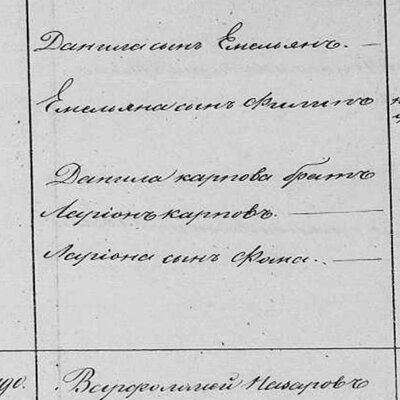 Данила сынъ Емельянъ. —
Емельяна сынъ Филипъ
Данила карпова братъ
Ларіонъ карповъ. —
Ларіона сынъ Фока. —
Варфоломей Назаровъ